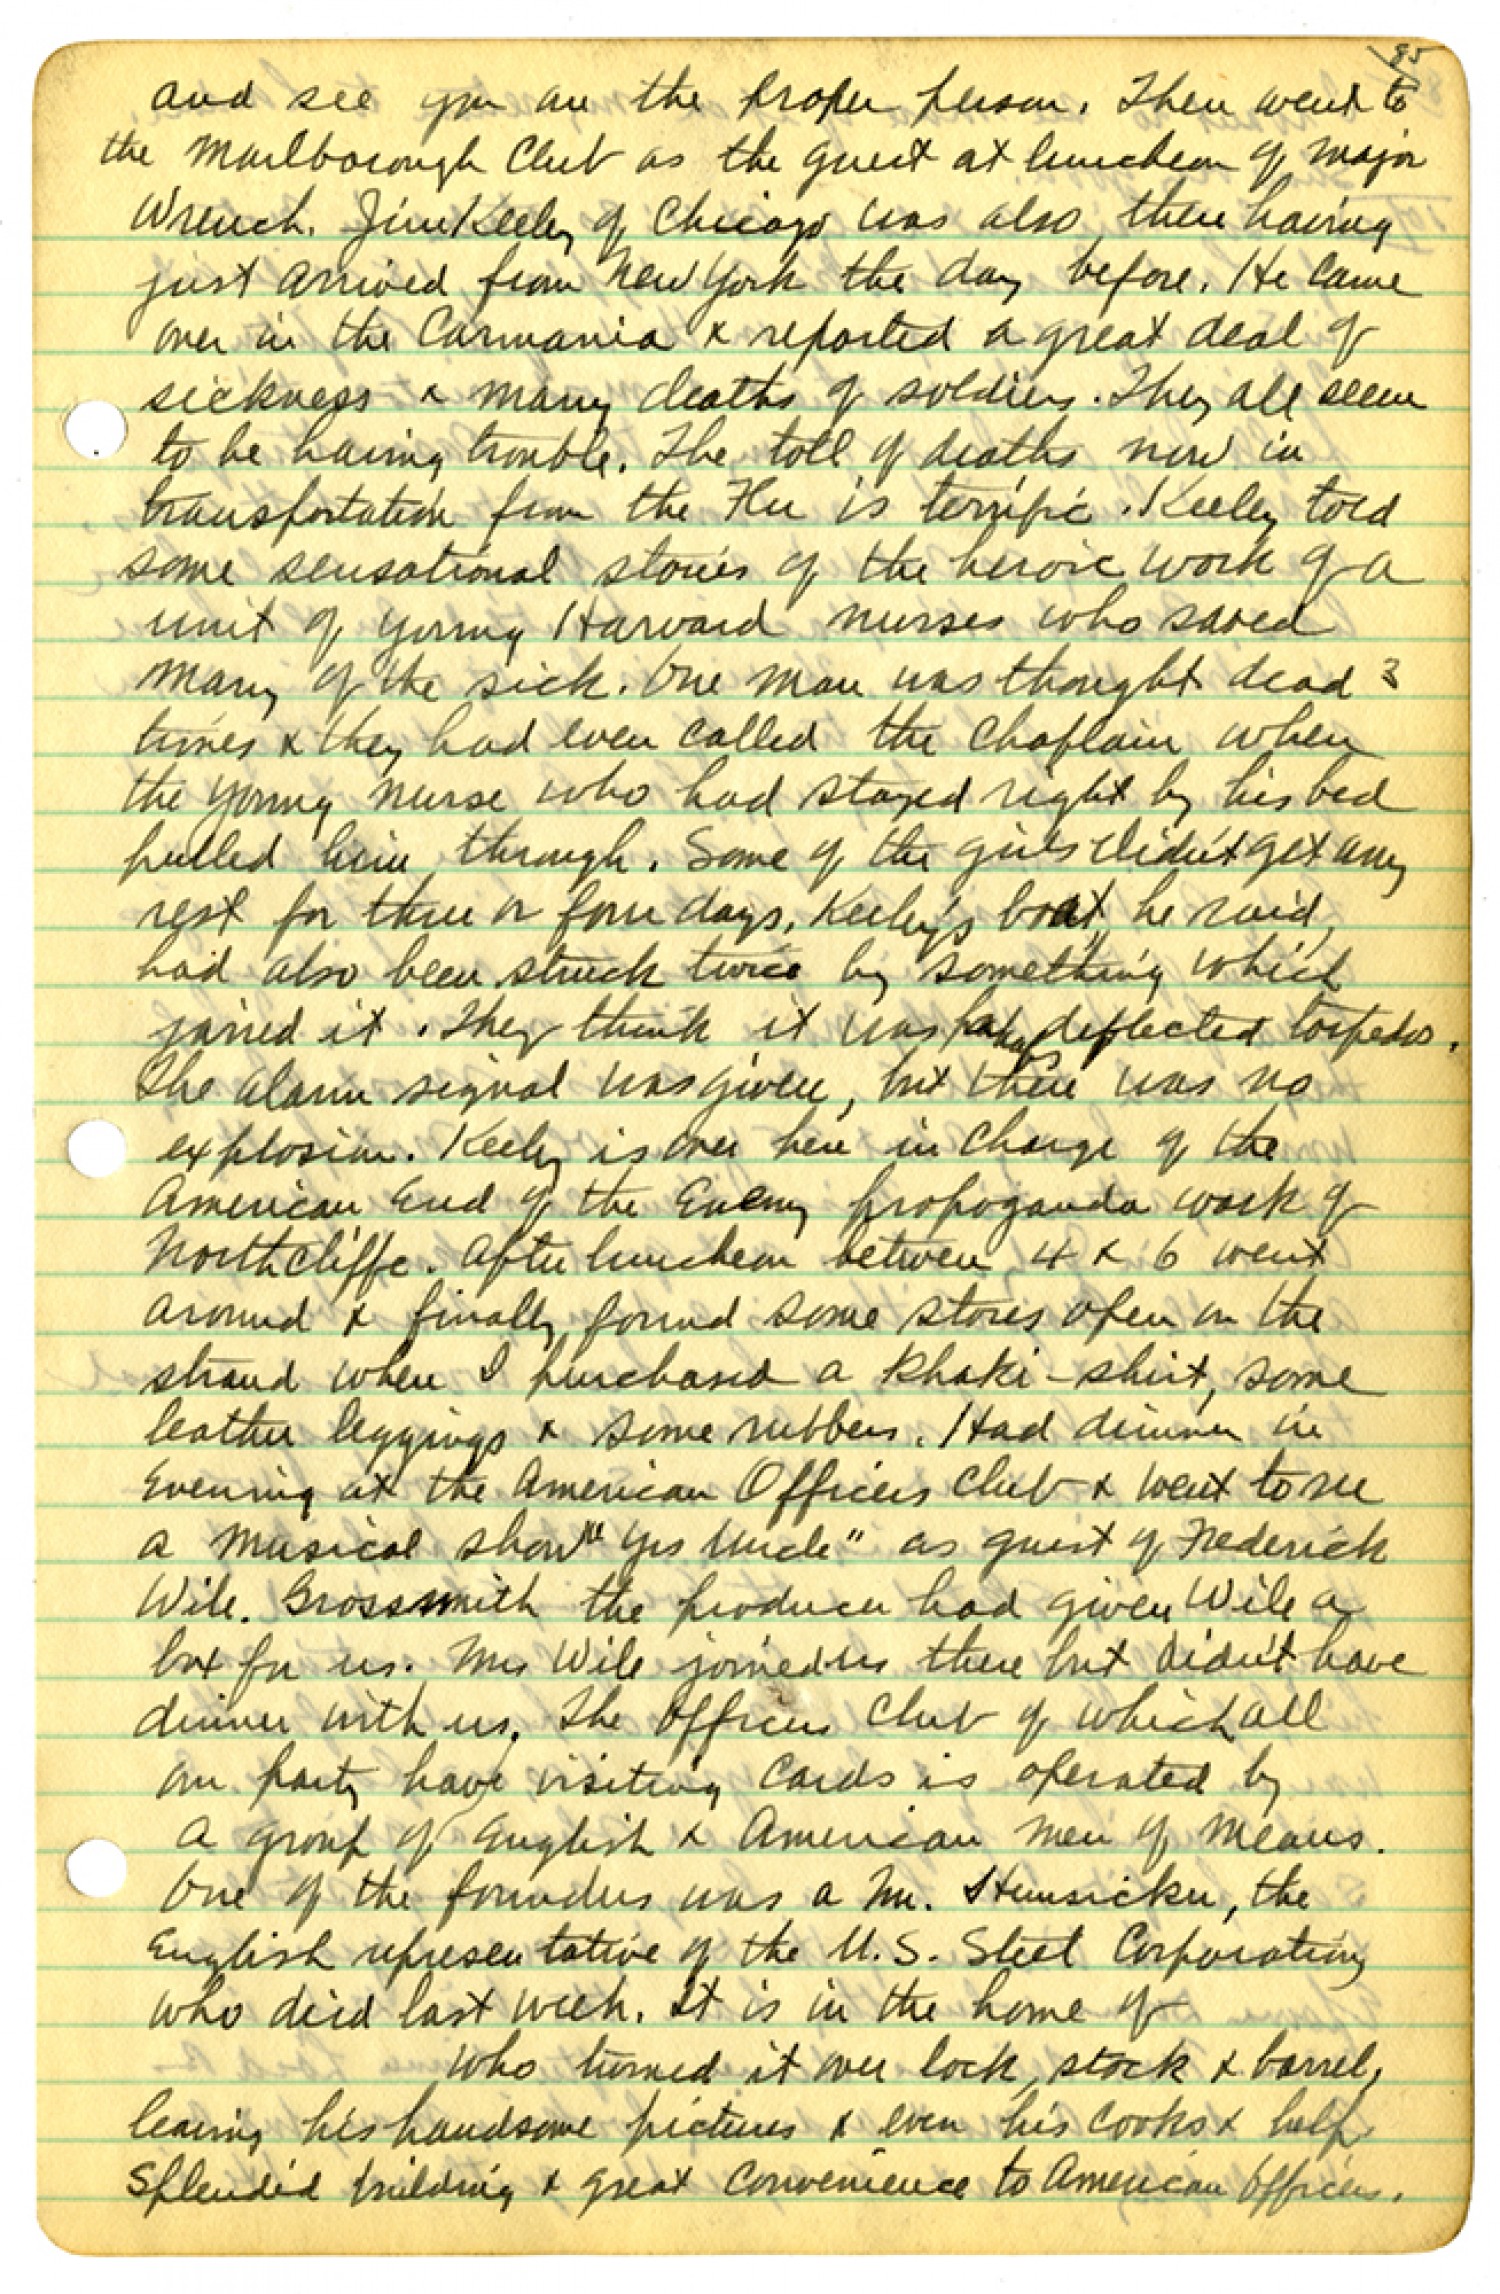 85
and see you are the proper person. Then went to
the Marlborough Club as the guest at luncheon of Major
Wrench. Jim Keeley of Chicago was also there having
just arrived from New York the day before. He came
over in the Carmania & reported a great deal of
sickness & many deaths of soldiers. They all seem
to be having trouble. The toll of deaths now in
transportation from the Flu is terrific. Keeley told
some sensational stories of the heroic work of a
unit of young Harvard nurses who saved
many of the sick. One man was thought dead 3
times & they had even called the Chaplain when
the young nurse who had stayed right by his bed
pulled him through. Some of the girls didn't get any
rest for three or four days. Keeley's boat, he said,
had also been struck twice by something which
jarred it. They think it was perhaps deflected torpedos.
The alarm signal was given, but there was no
explosion. Keeley is over here in charge of the
American End of the Enemy propoganda work of
Northcliffe. After luncheon between 4 & 6 went
around & finally found some stores open on the
strand when I purchased a Khaki-shirt, some
leather leggings & some rubbers. Had dinner in
Evening at the American Officers Club & went to see
a musical show "Yes Uncle" as guest of Frederick
Wile. Grossmith the producer had given Wile a
box for us. Mrs Wile joined us there but didn't have
dinner with us. The Officers Club of which all
our party have visiting cards is operated by
a group of English & American men of means.
One of the founders was a Mr. Hunsicker, the
English representative of the U.S. Steel Corporation
who died last week. It is in the home of
who turned it over lock, stock & barrel,
leaving his handsome pictures & even his cooks & help.
Splendid building & great convenience to American Officers.